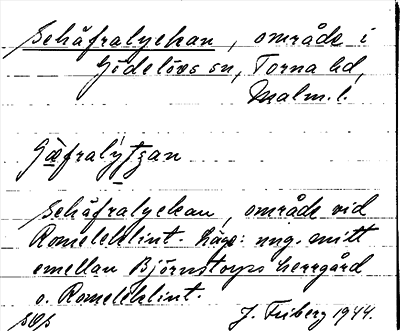 Schäfralyckan, område i
Gödelövs sn, Torna hd,
Malm. l.
Schäfralyckan, område vid
Romeleklint. Läge: ung. mitt
emellan Björnstorps herrgård
o. Romeleklint.
J. Friberg 1944.